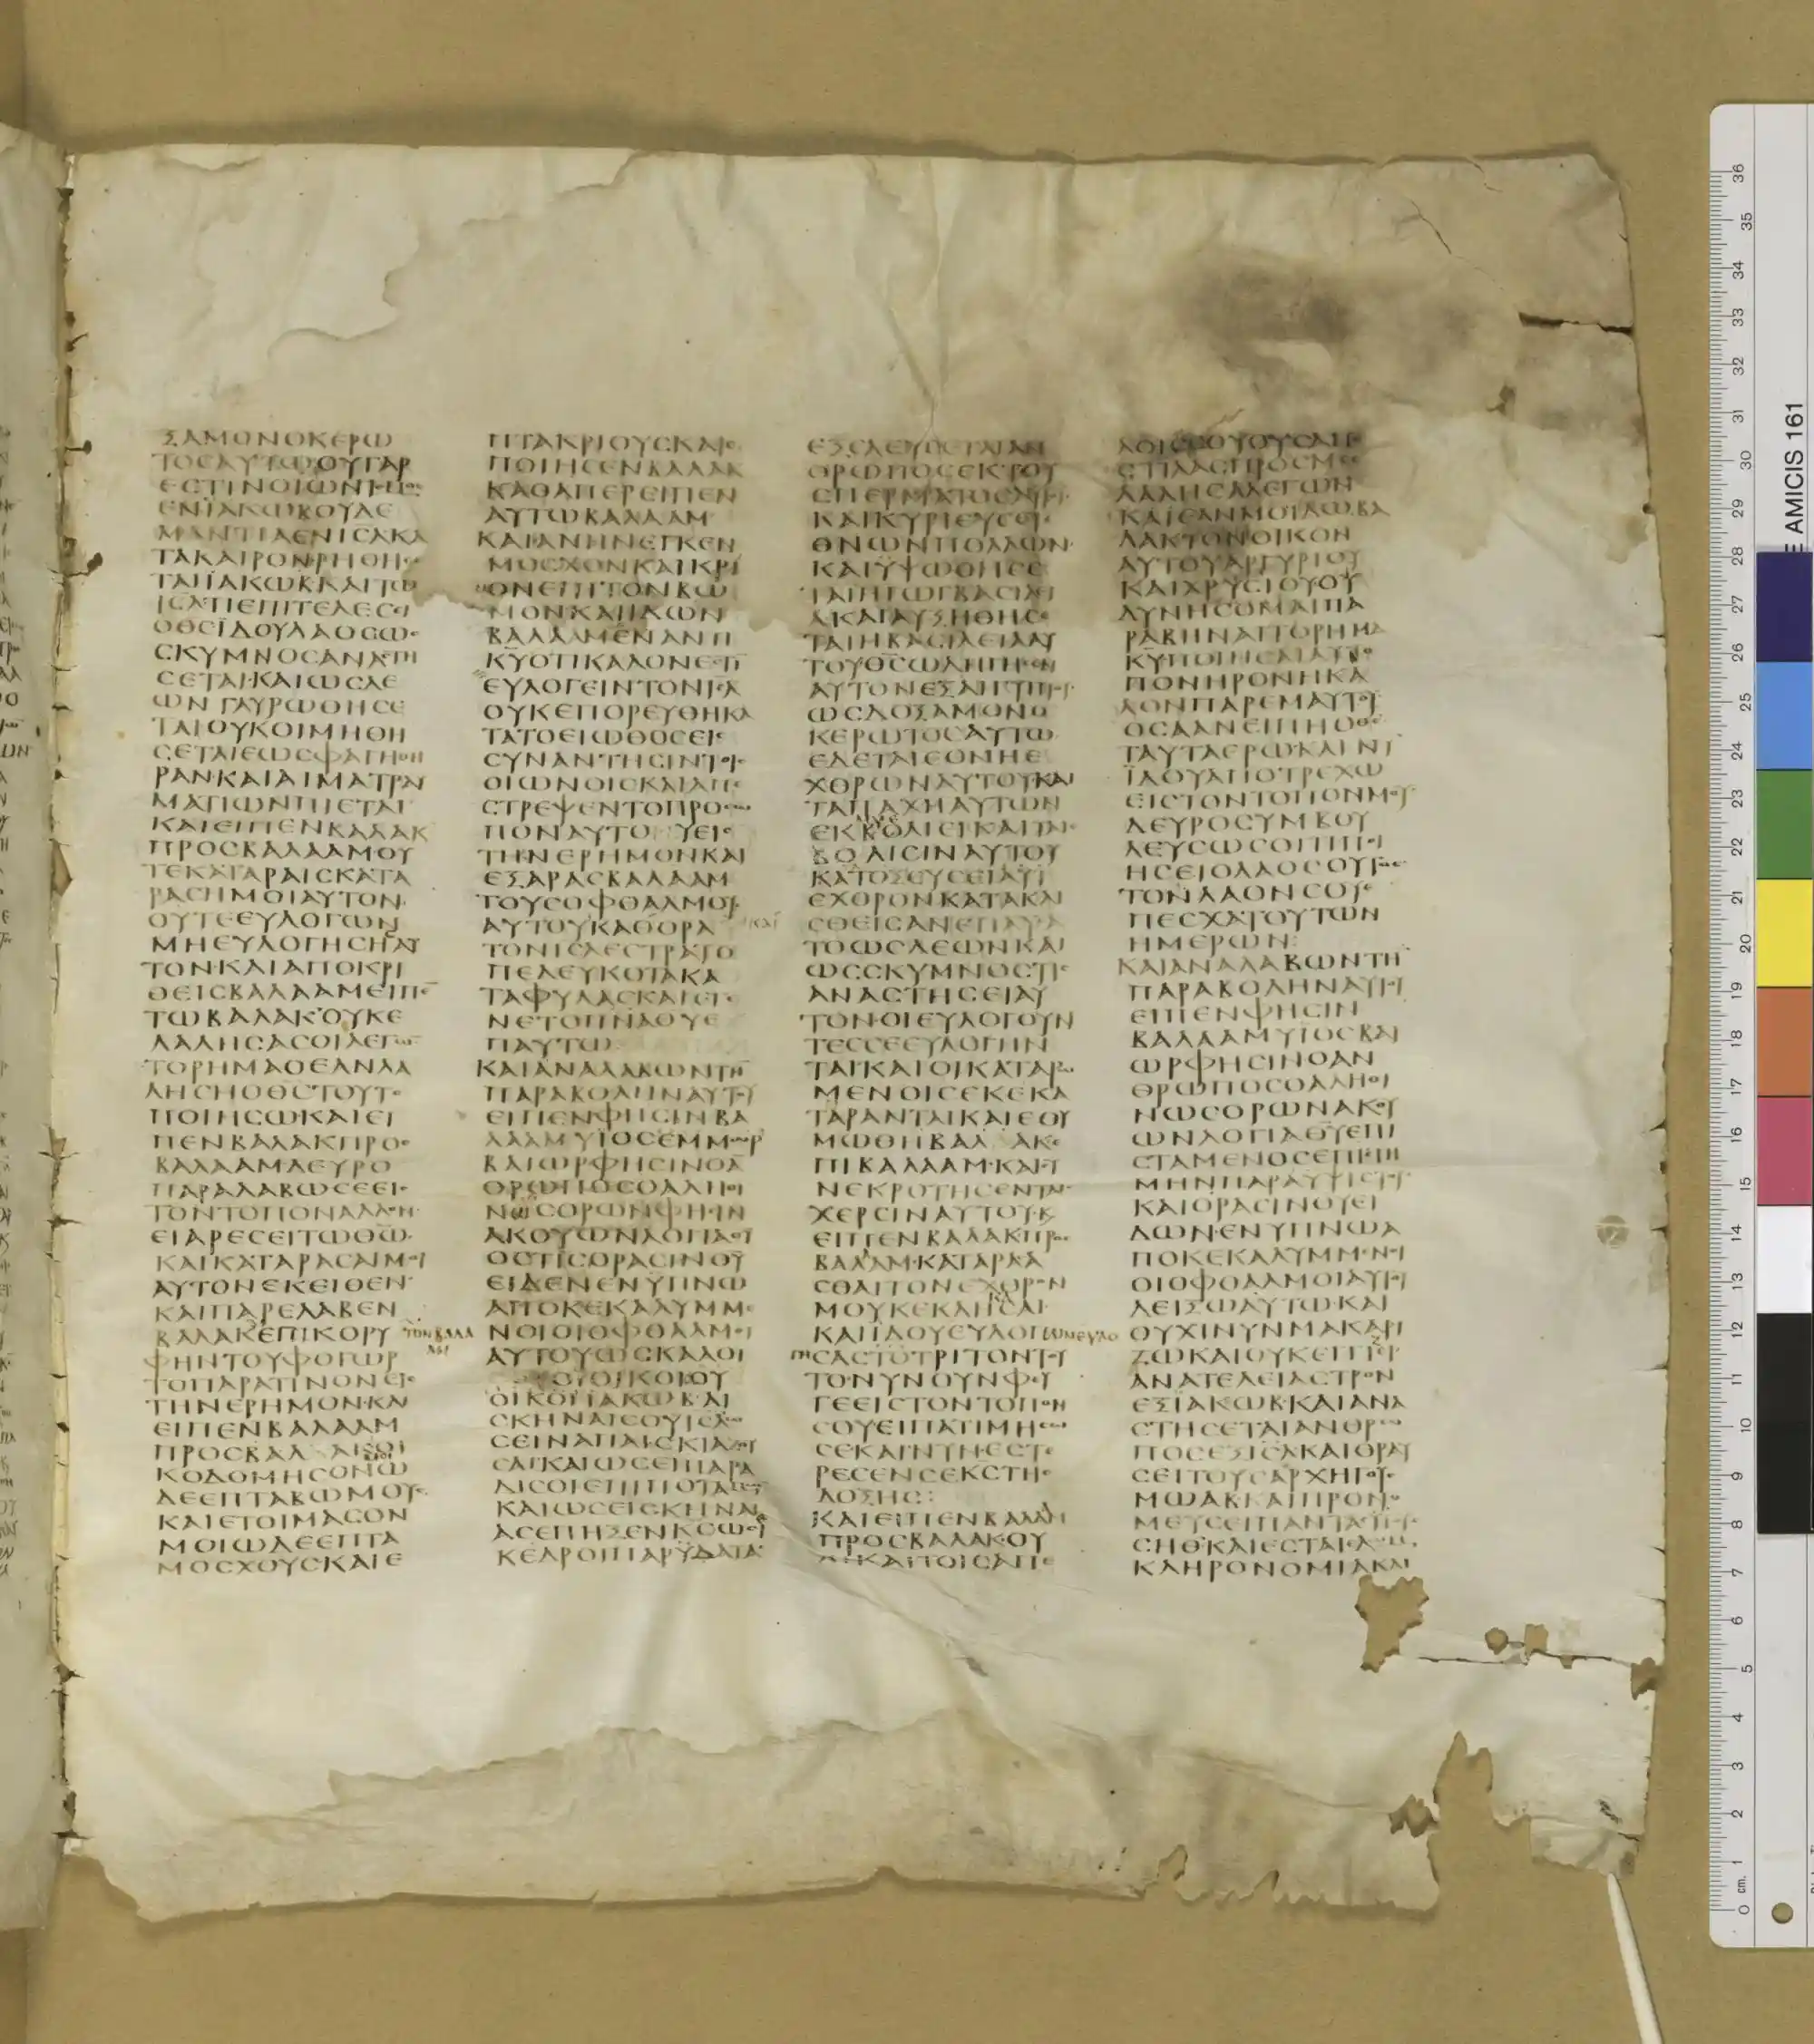 ΞΑΜΟΝΟΚΕΡΩ
ΤΟϹΑΥΤΩΟΥΓΑΡ
ΕϹΤΙΝΟΙΩΝΙϹΜΟϹ
ΕΝΪΑΚΩΒΟΥΔΕ
ΜΑΝΤΙΑΕΝΙϹΛΚΑ
ΤΑΚΑΙΡΟΝΡΗΘΗϹΕ
ΤΑΙΪΑΚΩΒΚΑΙΤΩ
ΙϹΛΤΙΕΠΙΤΕΛΕϹΕΙ
ΟΘϹΪΔΟΥΛΑΟϹΩϹ
ϹΚΥΜΝΟϹΑΝΑϹΤΗ
ϹΕΤΑΙ·ΚΑΙΩϹΛΕ
ΩΝΓΑΥΡΩΘΗϹΕ
ΤΑΙΟΥΚΟΙΜΗΘΗ
ϹΕΤΑΙΕΩϹΦΑΓΗΘΗ
ΡΑΝ·ΚΑΙΑΙΜΑΤΡΑΥ
ΜΑΤΙΩΝΠΙΕΤΑΙ
ΚΑΙΕΙΠΕΝΒΑΛΑΚ
ΠΡΟϹΒΑΛΑΑΜΟΥ
ΤΕΚΑΤΑΡΑΙϹΚΑΤΑ
ΡΑϹΗΜΟΙΑΥΤΟΝ
ΟΥΤΕΕΥΛΟΓΩΝ
ΜΗΕΥΛΟΓΗϹΗΑΥ
ΤΟΝ·ΚΑΙΑΠΟΚΡΙ
ΘΕΙϹΒΑΛΑΑΜΕΙΠΕ̅
ΤΩΒΑΛΑΚ·ΟΥΚΕ
ΛΑΛΗϹΑϹΟΙΛΕΓΩ̅
ΤΟΡΗΜΑΟΕΑΝΛΑ
ΛΗϹΗΟΘ̅Ϲ̅ΤΟΥΤΟ
ΠΟΙΗϹΩΚΑΙΕΙ
ΠΕΝΒΑΛΑΚΠΡΟϹ
ΒΑΛΑΑΜΔΕΥΡΟ
ΠΑΡΑΛΑΒΩϹΕΕΙϹ
ΤΟΝΤΟΠΟΝΑΛΛΟΝ
ΕΙΑΡΕϹΕΙΤΩΘ̅Ω̅
ΚΑΙΚΑΤΑΡΑϹΑΙΜΟΙ
ΑΥΤΟΝΕΚΕΙΘΕΝ
ΚΑΙΠΑΡΕΛΑΒΕΝ
ΒΑΛΑΚΕΠΙΚΟΡΥ ΤΟΝΒΑΛΑ
ΑΜ
ΦΗΝΤΟΥΦΟΓΩΡ
ΤΟΠΑΡΑΤΙΝΟΝΕΙϹ
ΤΗΝΕΡΗΜΟΝ·ΚΑΙ
ΕΙΠΕΝΒΑΛΑΑΜ
ΠΡΟϹΒΑΛΑΚΟΙ
ΚΟΔΟΜΗϹΟΝΩ
ΔΕΕΠΤΑΒΩΜΟΥϹ
ΚΑΙΕΤΟΙΜΑϹΟΝ
ΜΟΙΩΔΕΕΠΤΑ
ΜΟϹΧΟΥϹΚΑΙΕ
ΠΤΑΚΡΙΟΥϹΚΑΙΕ
ΠΟΙΗϹΕΝΒΑΛΑΚ
ΚΑΘΑΠΕΡΕΙΠΕΝ
ΑΥΤΩΒΑΛΑΑΜ
ΚΑΙΑΝΗΝΕΓΚΕΝ
ΜΟϹΧΟΝΚΑΙΚΡΙ
ΟΝΕΠΙΤΟΝΒΩ
ΜΟΝ·ΚΑΙΙΔΩΝ
ΒΑΛΑΑΜΕΝΑΝΤΙ
Κ̅Υ̅ΟΤΙΚΑΛΟΝΕϹΤΙ̅
ΕΥΛΟΓΕΙΝΤΟΝΙ̅Ϲ̅Λ̅
ΟΥΚΕΠΟΡΕΥΘΗΚΑ
ΤΑΤΟΕΙΩΘΟϹΕΙϹ
ϹΥΝΑΝΤΗϹΙΝΤΟΙϹ
ΟΙΩΝΟΙϹΚΑΙΑΠΕ
ϹΤΡΕΨΕΝΤΟΠΡΟϹΩ
ΠΟΝΑΥΤΟΥΕΙϹ
ΤΗΝΕΡΗΜΟΝΚΑΙ
ΕΞΑΡΑϹΒΑΛΑΑΜ
ΤΟΥϹΟΦΘΑΛΜΟΥϹ
ΑΥΤΟΥΚΑΘΟΡΑ
ΤΟΝΙϹΛΕϹΤΡΑΤΟ
ΠΕΔΕΥΚΟΤΑΚΑ
ΤΑΦΥΛΑϹΚΑΙΕΓΕ
ΝΕΤΟΠ̅Ν̅Α̅Θ̅Υ̅Ε
ΠΑΥΤΩ
ΚΑΙΑΝΑΛΑΒΩΝΤΗ̅
ΠΑΡΑΒΟΛΗΝΑΥΤΟΥ
ΕΙΠΕΝΦΗϹΙΝΒΑ
ΛΑΑΜΥΪΟϹΕΜΜΩΡ
ΒΑΙΩΡΦΗϹΙΝΟΑ̅
ΘΡΩΠΟϹΟΑΛΗΘΙ
ΝΩϹΟΡΩΝΦΗϹΙΝ
ΑΚΟΥΩΝΛΟΓΙΑΘΥ
ΟϹΤΙϹΟΡΑϹΙΝΘΥ
ΕΙΔΕΝΕΝΫΠΝΩ
ΑΠΟΚΕΚΑΛΥΜΜΕ
ΝΟΙΟΙΟΦΘΑΛΜΟΙ
ΑΥΤΟΥΩϹΚΑΛΟΙ
ΟΙΚΟΙΪΑΚΩΒΑΙ
ϹΚΗΝΑΙϹΟΥΙϹΛΩ
ϹΕΙΝΑΠΑΙϹΚΙΑΖΟΥ
ϹΑΙ·ΚΑΙΩϹΕΙΠΑΡΑ
ΔΙϹΟΙΕΠΙΠΟΤΑΜΩ̅
ΚΑΙΩϹΕΙϹΚΗΝΑΙ
ΑϹΕΠΗΞΕΝΚ̅Ϲ̅ΩϹΕΙ
ΚΕΔΡΟΙΠΑΡΫΔΑΤΑ
ΕΞΕΛΕΥϹΕΤΑΙΑΝ
ΘΡΩΠΟϹΕΚΤΟΥ
ϹΠΕΡΜΑΤΟϹΑΥΤΟΥ
ΚΑΙΚΥΡΙΕΥϹΕΙ
ΕΘΝΩΝΠΟΛΛΩΝ
ΚΑΙΫΨΩΘΗϹΕ
ΤΑΙΗΓΩΓΒΑϹΙΛΕΙ
ΑΚΑΙΑΥΞΗΘΗϹΕ
ΤΑΙΗΒΑϹΙΛΕΙΑΑΥ
ΤΟΥΘ̅Ϲ̅ΩΔΗΓΗϹΕΝ
ΑΥΤΟΝΕΞΑΙΓΥΠΤΟΥ
ΩϹΔΟΞΑΜΟΝΟ
ΚΕΡΩΤΟϹΑΥΤΩ
ΕΔΕΤΑΙΕΘΝΗΕ
ΧΘΡΩΝΑΥΤΟΥΚΑΙ
ΤΑΠΑΧΗΑΥΤΩΝ
ΕΚΒΟΛΙΕΙΚΑΙΤΑΙϹ
ΒΟΛΙϹΙΝΑΥΤΟΥ
ΚΑΤΟΞΕΥϹΕΙΑΥΤ
ΕΧΘΡΟΝΚΑΤΑΚΛΙ
ϹΘΕΙϹΑΝΕΠΑΥϹΑ
ΤΟΩϹΛΕΩΝΚΑΙ
ΩϹϹΚΥΜΝΟϹΤΙϹ
ΑΝΑϹΤΗϹΕΙΑΥ
ΤΟΝ·ΟΙΕΥΛΟΓΟΥΝ
ΤΕϹϹΕΕΥΛΟΓΗΝ
ΤΑΙ·ΚΑΙΟΙΚΑΤΑΡΩ
ΜΕΝΟΙϹΕΚΕΚΑ
ΤΑΡΑΝΤΑΙΚΑΙΕΘΥ
ΜΩΘΗΒΑΛΑΚΕ
ΠΙΒΑΛΑΑΜ·ΚΑΙϹΥ
ΝΕΚΡΟΤΗϹΕΝΤΑΙϹ
ΧΕΡϹΙΝΑΥΤΟΥ·Κ
ΕΙΠΕΝΒΑΛΑΚΠΡΟϹ
ΒΑΛΑΑΜ·ΚΑΤΑΡΑ
ϹΘΑΙΤΟΝΕΧΘΡΟΝ
ΜΟΥΚΕΚΛΗΚΑ
ΚΑΙΪΔΟΥΕΥΛΟΓΩΝΕΥΛΟ
ΓΗϹΑϹΤΟΤΡΙΤΟΝΤΟΥ
ΤΟ·ΝΥΝΟΥΝΦΕΥ
ΓΕΕΙϹΤΟΝΤΟΠΟΝ
ϹΟΥΕΙΠΑΤΙΜΗϹΩ
ϹΕΚΑΙΝΥΝΕϹΤΕ
ΡΕϹΕΝϹΕΚ̅Ϲ̅ΤΗϹ
ΔΟΞΗϹ:
ΚΑΙΕΙΠΕΝΒΑΛΑΑΜ
ΠΡΟϹΒΑΛΑΚ·ΟΥ
ΧΙΚΑΙΤΟΙϹΑΓΓΕ
ΛΟΙϹϹΟΥΟΥϹΑΠΕ
ϹΤΙΛΑϹΠΡΟϹΜΕ
ΛΑΛΗϹΑΛΕΓΩΝ
ΚΑΙΕΑΝΜΟΙΔΩΒΑ
ΛΑΚΤΟΝΟΙΚΟΝ
ΑΥΤΟΥΑΡΓΥΡΙΟΥ
ΚΑΙΧΡΥϹΙΟΥΟΥ
ΔΥΝΗϹΟΜΑΙΠΑ
ΡΑΒΗΝΑΙΤΟΡΗΜΑ
Κ̅Υ̅ΠΟΙΗϹΑΙΑΥΤΟ
ΠΟΝΗΡΟΝΗΚΑ
ΛΟΝΠΑΡΕΜΑΥΤΟΥ
ΟϹΑΑΝΕΙΠΗΟΘ̅Ϲ̅
ΤΑΥΤΑΕΡΩΚΑΙΝΥ̅
ΪΔΟΥΑΠΟΤΡΕΧΩ
ΕΙϹΤΟΝΤΟΠΟΝΜΟΥ
ΔΕΥΡΟϹΥΜΒΟΥ
ΛΕΥϹΩϹΟΙΤΙΠΟΙ
ΗϹΕΙΟΛΑΟϹΟΥΤΟϹ
ΤΟΝΛΑΟΝϹΟΥΕ
ΠΕϹΧΑΤΟΥΤΩΝ
ΗΜΕΡΩΝ:
ΚΑΙΑΝΑΛΑΒΩΝΤΗ
ΠΑΡΑΒΟΛΗΝΑΥΤΟΥ
ΕΙΠΕΝΦΗϹΙΝ
ΒΑΛΑΑΜΥΪΟϹΒΑΙ
ΩΡΦΗϹΙΝΟΑΝ
ΘΡΩΠΟϹΟΑΛΗΘΙ
ΝΩϹΟΡΩΝΑΚΟΥ
ΩΝΛΟΓΙΑΘ̅Υ̅ΕΠΙ
ϹΤΑΜΕΝΟϹΕΠΙϹΤΗ
ΜΗΝΠΑΡΑΥΨΙϹΤΟΥ
ΚΑΙΟΡΑϹΙΝΘΥΕΙ
ΔΩΝ·ΕΝΥΠΝΩΑ
ΠΟΚΕΚΑΛΥΜΜΕΝΟΙ
ΟΙΟΦΘΑΛΜΟΙΑΥΤΟΥ
ΔΕΙΞΩΑΥΤΩ·ΚΑΙ
ΟΥΧΙΝΥΝΜΑΚΑΡΙ
ΖΩΚΑΙΟΥΚΕΓΓΙΖΙ
ΑΝΑΤΕΛΕΙΑϹΤΡΟΝ
ΕΞΪΑΚΩΒ·ΚΑΙΑΝΑ
ϹΤΗϹΕΤΑΙΑΝΘΡΩ
ΠΟϹΕΞΙ̅Ϲ̅Λ̅ΚΑΙΘΡΑΥ
ϹΕΙΤΟΥϹΑΡΧΗΓΟΥϹ
ΜΩΑΒΚΑΙΠΡΟΝΟ
ΜΕΥϹΕΙΠΑΝΤΑϹΥΙΟΥϹ
ϹΗΘ·ΚΑΙΕϹΤΑΙΕΔΩΜ
ΚΛΗΡΟΝΟΜΙΑΚΑΙ